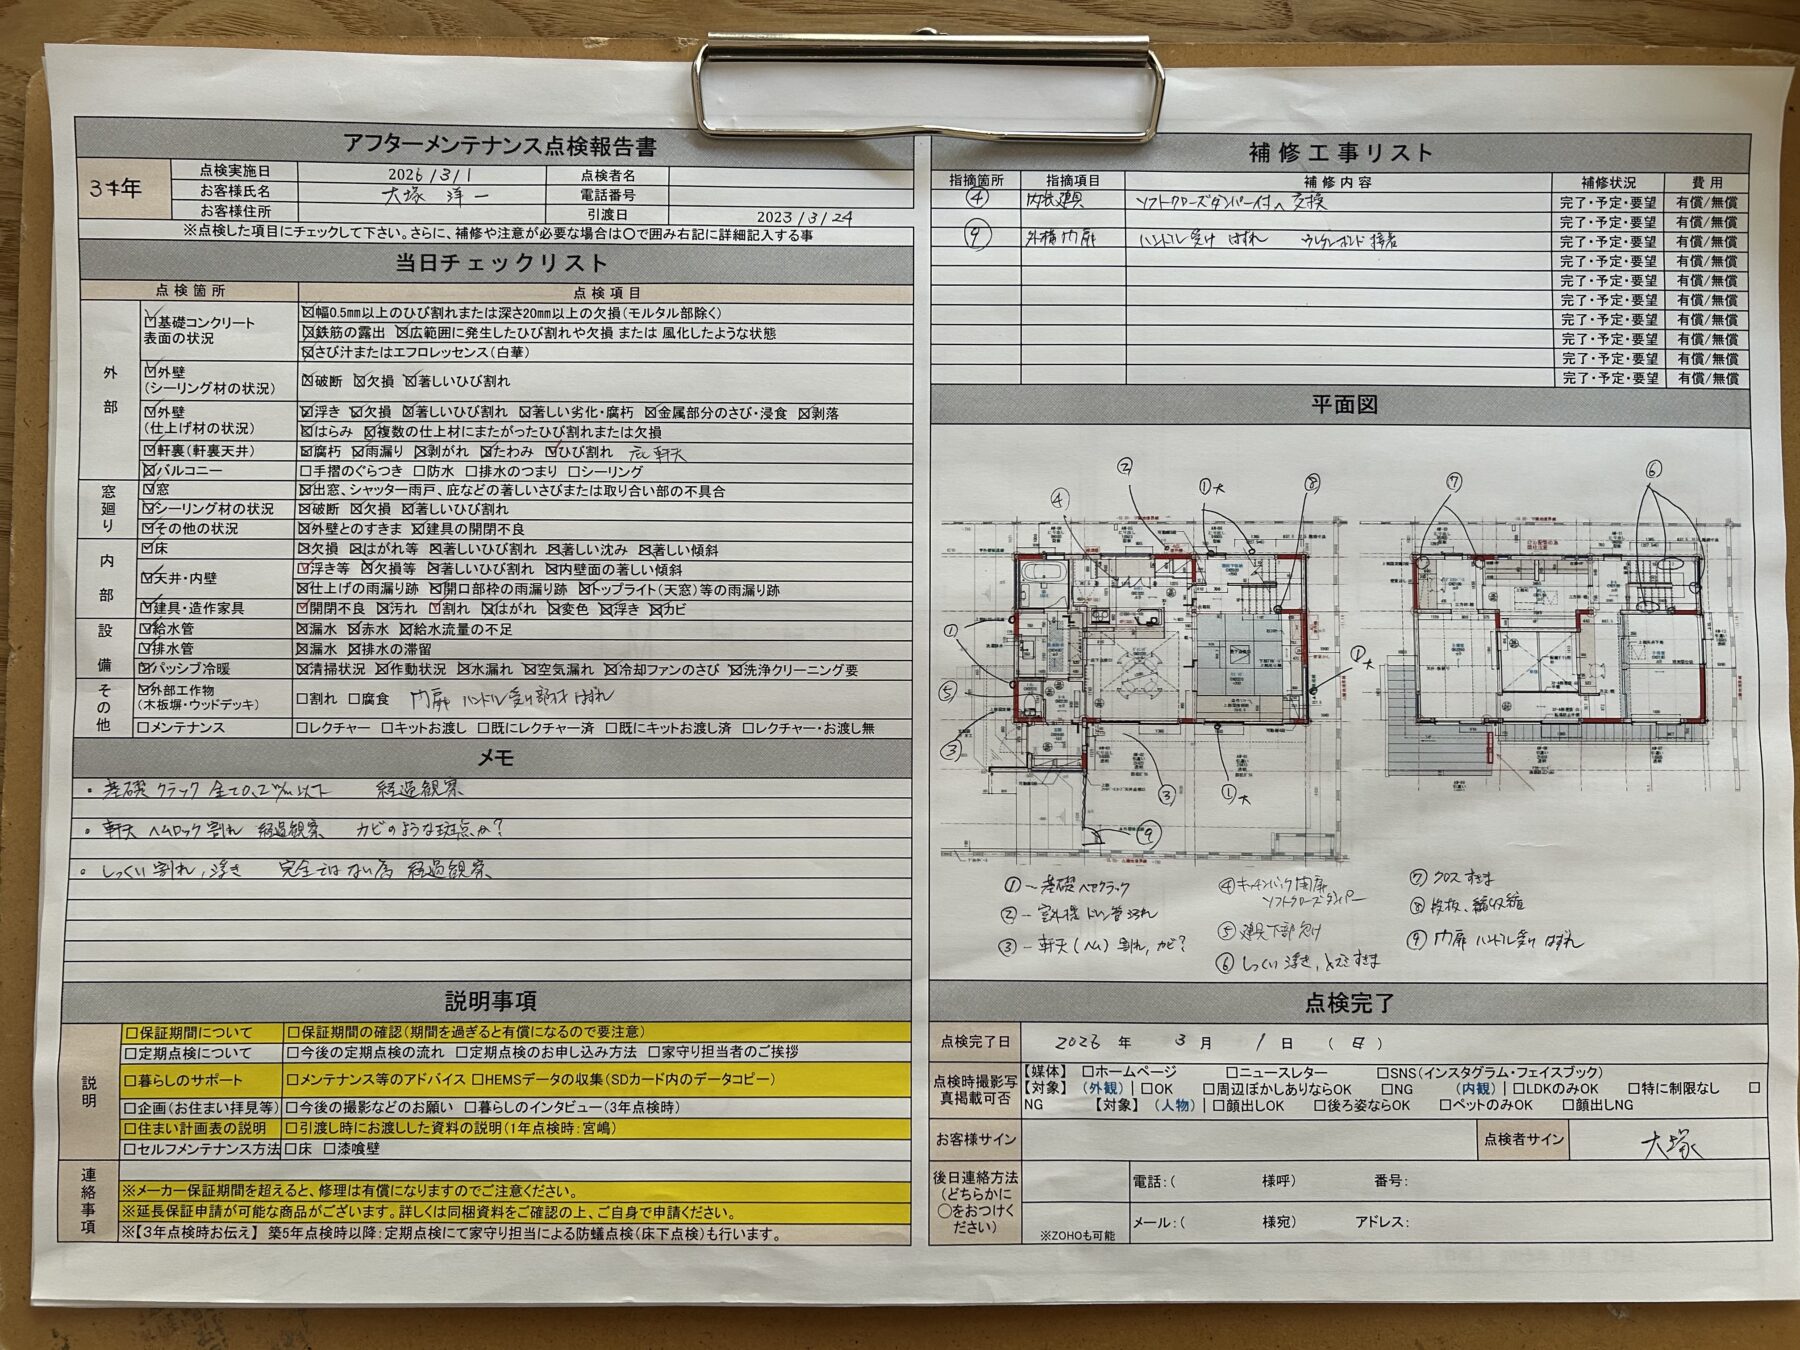 アフターメンテナンス点検報告書
3年
点検実施日 2026/3/1 点検者名
お客様氏名 大塚 洋一 電話番号
お客様住所 引渡日 2023/3/24
※点検した項目にチェックして下さい。さらに、補修や注意が必要な場合は〇で囲み右記に詳細記入する事
当日チェックリスト
点検箇所 点検項目
外部
☑基礎コンクリート
表面の状況
☒幅0.5mm以上のひび割れまたは深さ20mm以上の欠損(モルタル部除く)
☒鉄筋の露出 ☒広範囲に発生したひび割れや欠損 または 風化したような状態
☒さび汁またはエフロレッセンス(白華)
☑外壁
(シーリング材の状況)
☒破断 ☒欠損 ☒著しいひび割れ
☑外壁
(仕上げ材の状況)
☒浮き ☒欠損 ☒著しいひび割れ ☒著しい劣化・腐朽 ☒金属部分のさび・浸食 ☒剥落
☒はらみ ☒複数の仕上材にまたがったひび割れまたは欠損
☑軒裏(軒裏天井) ☒腐朽 ☒雨漏り ☒剥がれ ☒たわみ ☑ひび割れ 軒天
☒バルコニー □手摺のぐらつき □防水 □排水のつまり □シーリング
窓廻り
☑窓 ☒出窓、シャッター雨戸、庇などの著しいさびまたは取り合い部の不具合
☑シーリング材の状況 ☒破断 ☒欠損 ☒著しいひび割れ
☑その他の状況 ☒外壁とのすきま ☒建具の開閉不良
内部
☑床 ☒欠損 ☒はがれ等 ☒著しいひび割れ ☒著しい沈み ☒著しい傾斜
☑天井・内壁 ☑浮き等 ☒欠損等 ☒著しいひび割れ ☒内壁面の著しい傾斜
☒仕上げの雨漏り跡 ☒開口部枠の雨漏り跡 ☒トップライト(天窓)等の雨漏り跡
☑建具・造作家具 ☑開閉不良 ☒汚れ ☑割れ ☒はがれ ☒変色 ☒浮き ☒カビ
設備
☑給水管 ☒漏水 ☒赤水 ☒給水流量の不足
☑排水管 ☒漏水 ☒排水の滞留
☑パッシブ冷暖 ☒清掃状況 ☒作動状況 ☒水漏れ ☒空気漏れ ☒冷却ファンのさび ☒洗浄クリーニング要
その他
☑外部工作物
(木板塀・ウッドデッキ)
□割れ □腐食 門扉 ハンドル受け部材 はずれ
□メンテナンス □レクチャー □キットお渡し □既にレクチャー済 □既にキットお渡し済 □レクチャー・お渡し無
メモ
・基礎 クラック 全て0.2㎜以下 経過観察
・軒天 ヘムロック割れ 経過観察 カビのような斑点か?
・しっくい割れ,浮き 完全ではない為 経過観察
説明事項
説明
□保証期間について □保証期間の確認(期間を過ぎると有償になるので要注意)
□定期点検について □今後の定期点検の流れ □定期点検のお申し込み方法 □家守り担当者のご挨拶
□暮らしのサポート □メンテナンス等のアドバイス □HEMSデータの収集(SDカード内のデータコピー)
□企画(お住まい拝見等) □今後の撮影などのお願い □暮らしのインタビュー(3年点検時)
□住まい計画表の説明 □引渡し時にお渡しした資料の説明(1年点検時:宮嶋)
□セルフメンテナンス方法 □床 □漆喰壁
連絡事項
※メーカー保証期間を超えると、修理は有償になりますのでご注意ください。
※延長保証申請が可能な商品がございます。詳しくは同梱資料をご確認の上、ご自身で申請ください。
※【3年点検時お伝え】 築5年点検時以降:定期点検にて家守り担当による防蟻点検(床下点検)も行います。
補修工事リスト
指摘箇所 指摘項目 補修内容 補修状況 費用
④ 内扉建具 ソフトクローズダンパー付へ交換 完了・予定・要望 有償/無償
完了・予定・要望 有償/無償
⑨ 外構門扉 ハンドル受け はずれ ウレタンボンド接着 完了・予定・要望 有償/無償
完了・予定・要望 有償/無償
完了・予定・要望 有償/無償
完了・予定・要望 有償/無償
完了・予定・要望 有償/無償
完了・予定・要望 有償/無償
完了・予定・要望 有償/無償
完了・予定・要望 有償/無償
平面図
② ①大 ④ ⑧ ⑦ ⑥
① ①大
⑤
③ ③ ①大
⑨
①~基礎ヘアクラック
②-室外機ドレン管汚れ
③-軒天(ヘム)割れ,カビ?
④キッチンバック内扉
ソフトクローズダンパー
⑤建具下部欠け
⑥しっくい浮き,すきま
⑦クロスすきま
⑧段板、幅収縮
⑨門扉ハンドル受けはずれ
点検完了
点検完了日 2026年 3月 1日 (日)
点検時撮影写真掲載可否
【媒体】 □ホームページ □ニュースレター □SNS(インスタグラム・フェイスブック)
【対象】 (外観)|□OK □周辺ぼかしありならOK □NG (内観)|□LDKのみOK □特に制限なし □
NG 【対象】 (人物)|□顔出しOK □後ろ姿ならOK □ペットのみOK □顔出しNG
お客様サイン 点検者サイン 大塚
後日連絡方法
(どちらかに
〇をおつけく
ださい)
※ZOHOも可能
電話:( 様呼) 番号:
メール:( 様宛) アドレス: